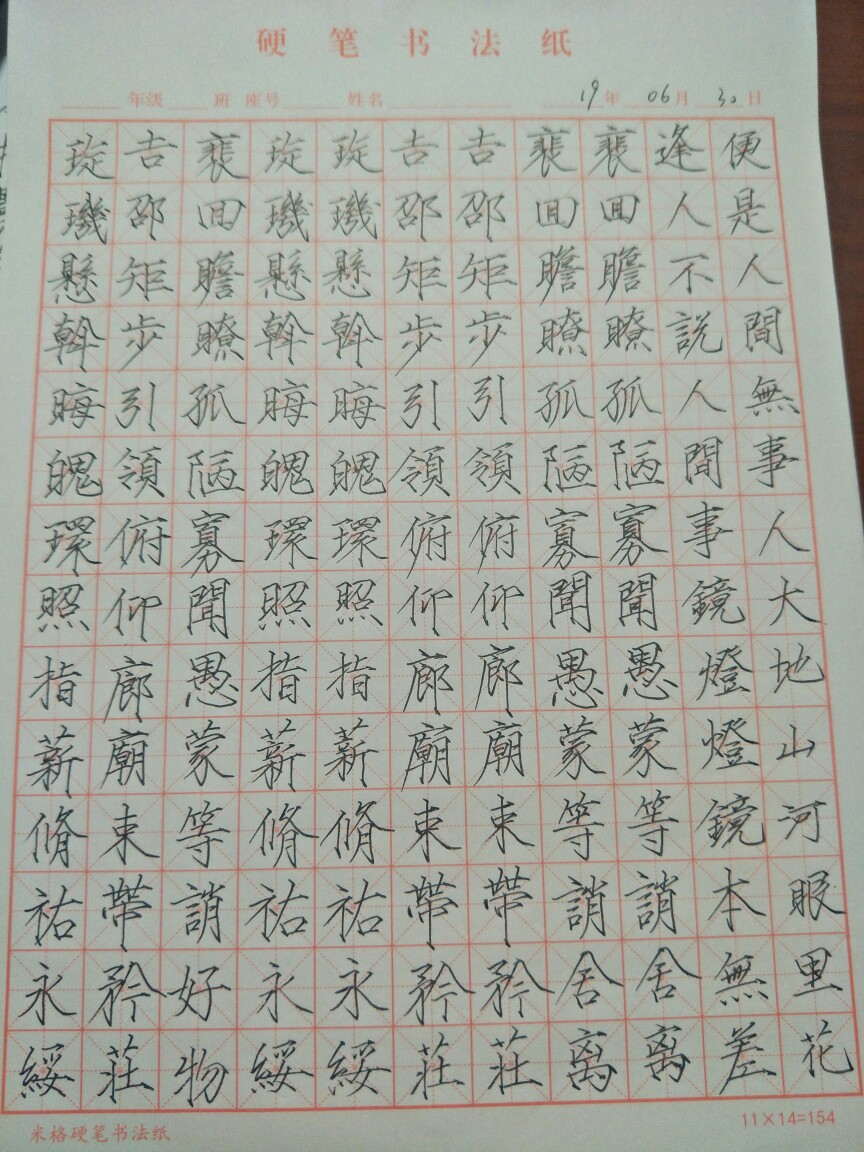 硬笔书法纸
年级 班 座号 姓名 19年 06月 30日
璇璣懸斡晦魄環照指薪脩祐永綏
吉邵矩步引領俯仰廊廟束帶矜莊
裴回瞻瞭孤陋寡聞愚蒙等誚好物
璇璣懸斡晦魄環照指薪脩祐永綏
璇璣懸斡晦魄環照指薪脩祐永綏
吉邵矩步引領俯仰廊廟束帶矜莊
吉邵矩步引領俯仰廊廟束帶矜莊
裴回瞻瞭孤陋寡聞愚蒙等誚舍离
裴回瞻瞭孤陋寡聞愚蒙等誚舍离
逢人不說人間事鏡燈燈鏡本無差
便是人間無事人大地山河眼里花
米格硬笔书法纸
11×14=154